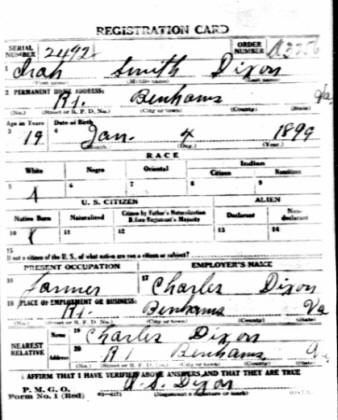 REGISTRATION CARD
SERIAL NUMBER 2492 ORDER NUMBER
1 Smith Dixon
2 PERMANENT HOME ADDRESS:
R1. Benhams Va
(No.) (Street or R. F. D. No.) (City or town) (County) (State)
Age in Years Date of Birth
3 19 4 Jan. 4 1899
(Month) (Day) (Year)
RACE
White Negro Oriental Indian
Citizen Noncitizen
5 6 7 8 9
U. S. CITIZEN ALIEN
Native Born Naturalized Citizen by Father's Naturalization Before Registrant's Majority Declarant Non-declarant
10 11 12 13 14
15
If not a citizen of the U. S., of what nation are you a citizen or subject?
PRESENT OCCUPATION EMPLOYER'S NAME
16 Farmer 17 Charles Dixon
18 PLACE OF EMPLOYMENT OR BUSINESS:
R1. Benhams Va
(No.) (Street or R. F. D. No.) (City or town) (County) (State)
NEAREST RELATIVE Name 19 Charles Dixon
Address 20 R1 Benhams
(No.) (Street or R. F. D. No.) (City or town) (County) (State)
I AFFIRM THAT I HAVE VERIFIED ABOVE ANSWERS AND THAT THEY ARE TRUE
P. M. G. O.
Form No. 1 (Red) Dixon
(Registrant's signature or mark)